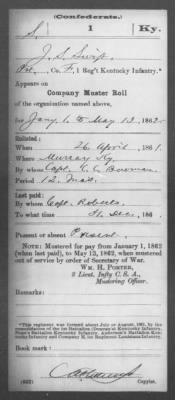 (Confederate.)
S. 1 Ky.
J. S. Swift
Pvt., Co. F, 1 Reg't Kentucky Infantry.*
Appears on
Company Muster Roll
of the organization named above,
for Jany. 1 to May 13, 1862.
Enlisted:
When 26 April, 1861.
Where Murray Ky.
By whom Capt. C. C. Bowman
Period 12 Mos.
Last paid:
By whom Capt. Roberts
To what time 31 Dec., 186
Present or absent Present
NOTE: Mustered for pay from January 1, 1862
(when last paid), to May 13, 1862, when mustered
out of service by order of Secretary of War.
WM. H. PORTER,
2 Lieut. Infty C. S. A.,
Mustering Officer.
Remarks:
*This regiment was formed about July or August, 1861, by the
consolidation of the 1st Battalion
Kentucky Infantry,
Battalion Kentucky Infantry, Anderson's Battalion Kentucky
Infantry and Company
Louisiana Infantry.
Book mark:
(682)
Copyist.